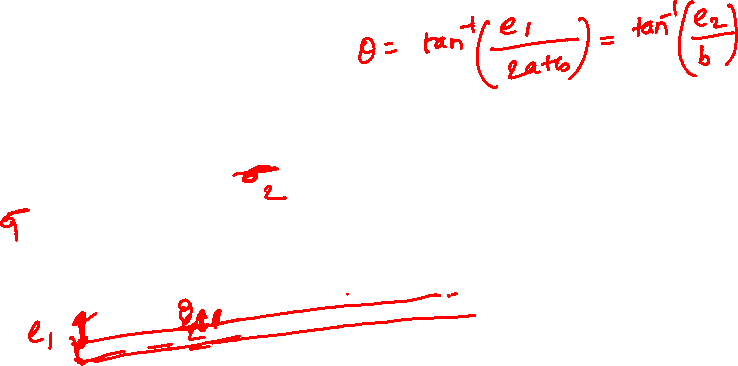 θ = tan⁻¹(e₁/(2a+b)) = tan⁻¹(e₂/b)
σ₂
σ₁
e₁